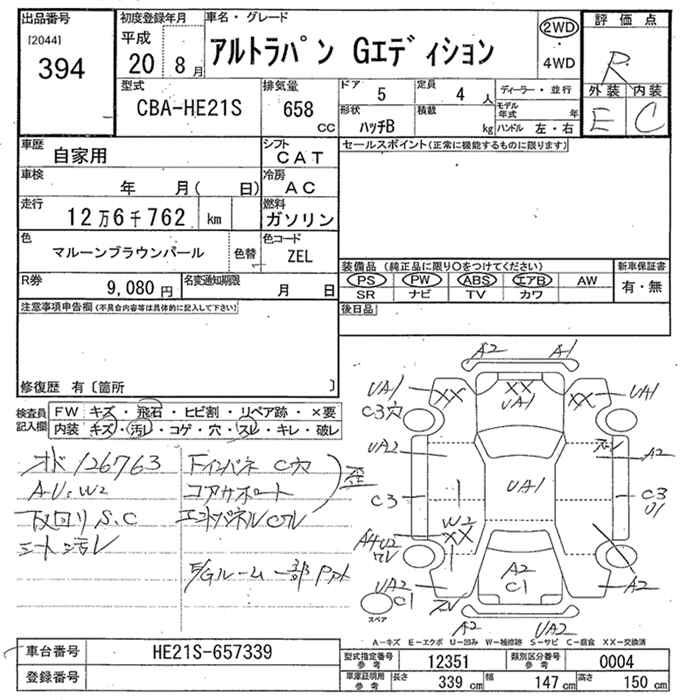 出品番号
[2044]
394
初度登録年月
平成
20 8月
車名・グレード
アルトラパン Gエディション
2WD
4WD
評価点
R
外装 内装
E C
型式
CBA-HE21S
排気量
658 CC
ドア 5
定員 4 人
形状 ハッチB
積載 kg
ディーラー・並行
モデル年式 年
ハンドル 左・右
車歴
自家用
シフト
CAT
車検
年 月( 日)
冷房
AC
走行
12万6千762 km
燃料
ガソリン
色
マルーンブラウンパール
色替
色コード
ZEL
R券
9,080円
名変通知期限
月 日
セールスポイント(正常に機能するものに限ります)
装備品 (純正品に限り〇をつけてください)
PS PW ABS エアB AW
SR ナビ TV カワ
新車保証書
有・無
後日品
注意事項申告欄(不具合内容等は具体的に記入して下さい)
修復歴 有〔箇所 〕
検査員記入欄
FW キズ・飛石・ヒビ割・リペア跡・×要
内装 キズ・汚レ・コゲ・穴・スレ・キレ・破レ
オド126763
A・U・W2
下回りS.C
シート汚レ
下インパネC穴
コアサポート
エンドパネルCワレ
歪
E/Gルーム一部Pハゲ
A2 A1
UA1 XX XX XX UA1
C3穴 UA1
UA2 A2
C3 UA1 C3
U1
W2
XX
A4U2
ワレ
UA2 A2
C1 A2
C1
A2 UA2
スペア
A-キズ E-エクボ U-凹み W-補修跡 S-サビ C-腐食 XX-交換済
車台番号 HE21S-657339
登録番号
型式指定番号 参考 12351
類別区分番号 参考 0004
車庫証明用 参考 長さ 339 cm 幅 147 cm 高さ 150 cm